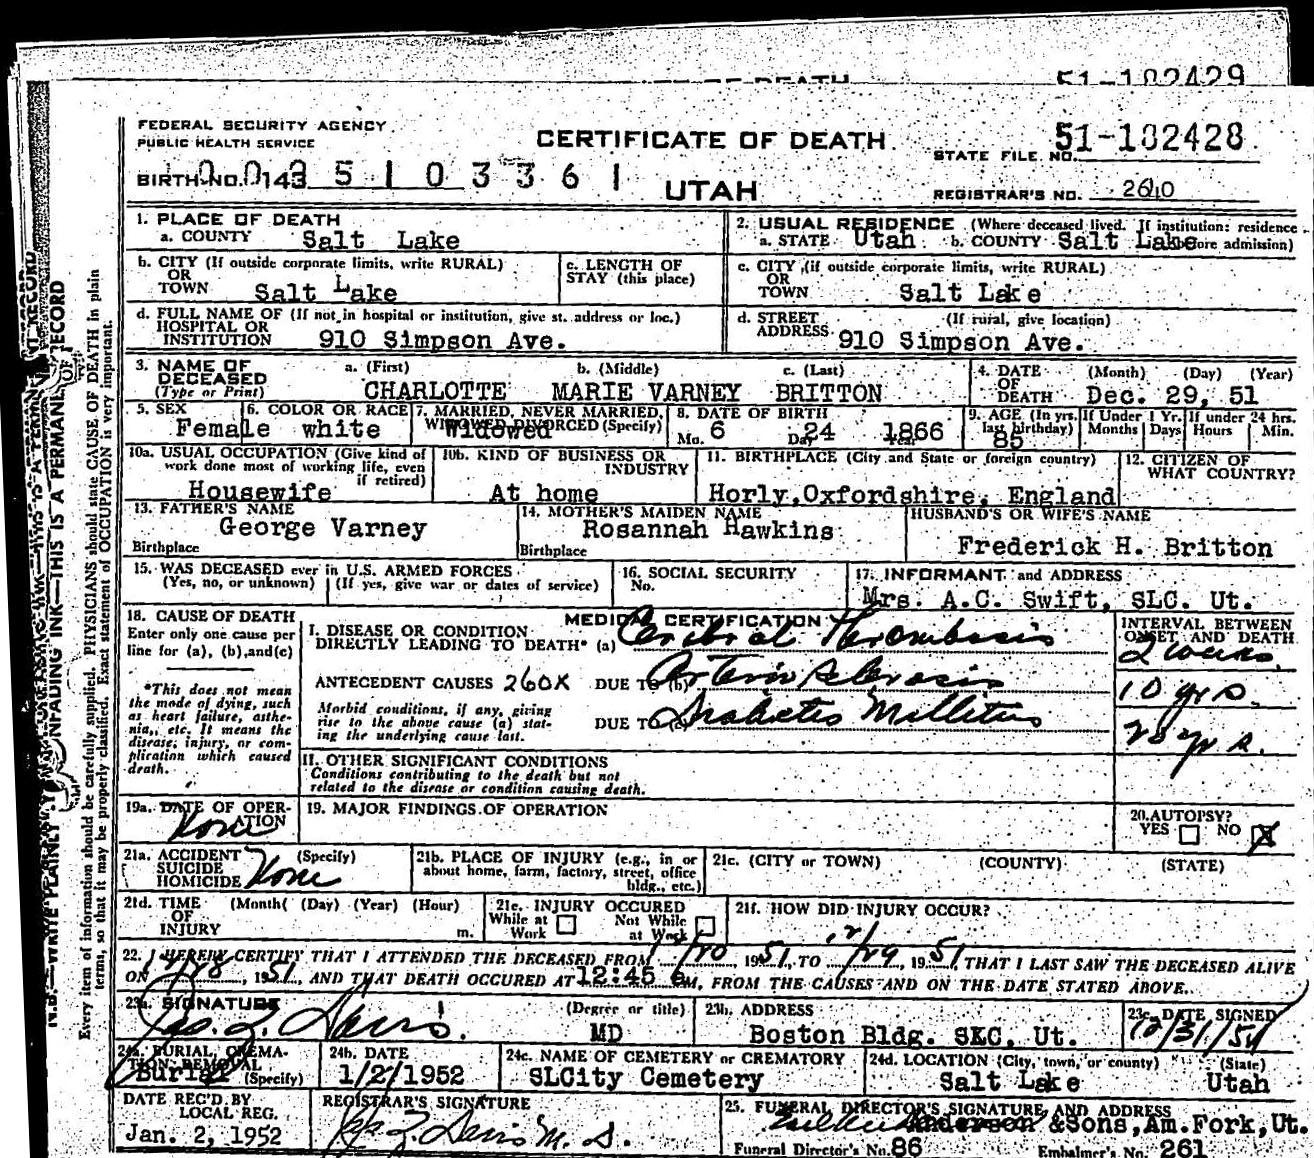 51-182429
FEDERAL SECURITY AGENCY
PUBLIC HEALTH SERVICE
CERTIFICATE OF DEATH
51-182428
STATE FILE NO.
BIRTH NO.
UTAH
REGISTRAR'S NO. 2610
1. PLACE OF DEATH
a. COUNTY Salt Lake
2. USUAL RESIDENCE (Where deceased lived. If institution: residence before admission)
a. STATE Utah b. COUNTY Salt Lake
b. CITY (If outside corporate limits, write RURAL)
OR
TOWN Salt Lake
c. LENGTH OF
STAY (this place)
c. CITY (if outside corporate limits, write RURAL)
OR
TOWN Salt Lake
d. FULL NAME OF (If not in hospital or institution, give st. address or loc.)
HOSPITAL OR
INSTITUTION 910 Simpson Ave.
d. STREET (If rural, give location)
ADDRESS 910 Simpson Ave.
3. NAME OF DECEASED (Type or Print)
a. (First) b. (Middle) c. (Last)
CHARLOTTE MARIE VARNEY BRITTON
4. DATE OF DEATH (Month) (Day) (Year)
Dec. 29, 51
5. SEX
Female
6. COLOR OR RACE
white
7. MARRIED, NEVER MARRIED, WIDOWED, DIVORCED (Specify)
Widowed
8. DATE OF BIRTH
Mo. 6 Day 24 Year 1866
9. AGE (In yrs. last birthday) 85
If Under 1 Yr. Months Days
If under 24 hrs. Hours Min.
10a. USUAL OCCUPATION (Give kind of work done most of working life, even if retired)
Housewife
10b. KIND OF BUSINESS OR INDUSTRY
At home
11. BIRTHPLACE (City and State or foreign country)
Horly, Oxfordshire, England
12. CITIZEN OF WHAT COUNTRY?
13. FATHER'S NAME
George Varney
Birthplace
14. MOTHER'S MAIDEN NAME
Rosannah Hawkins
Birthplace
HUSBAND'S OR WIFE'S NAME
Frederick H. Britton
15. WAS DECEASED ever in U.S. ARMED FORCES
(Yes, no, or unknown) (If yes, give war or dates of service)
16. SOCIAL SECURITY
No.
17. INFORMANT and ADDRESS
Mrs. A.C. Swift, SLC. Ut.
18. CAUSE OF DEATH
Enter only one cause per line for (a), (b), and (c)
*This does not mean the mode of dying, such as heart failure, asthenia, etc. It means the disease, injury, or complication which caused death.
MEDICAL CERTIFICATION
I. DISEASE OR CONDITION
DIRECTLY LEADING TO DEATH* (a) Cerebral Thrombosis
ANTECEDENT CAUSES 260X DUE TO (b) Arterio Sclerosis
Morbid conditions, if any, giving rise to the above cause (a) stating the underlying cause last.
DUE TO (c) Diabetes Mellitus
INTERVAL BETWEEN ONSET AND DEATH
2 weeks
10 yrs
yrs.
II. OTHER SIGNIFICANT CONDITIONS
Conditions contributing to the death but not
related to the disease or condition causing death.
19a. DATE OF OPERATION
None
19. MAJOR FINDINGS OF OPERATION
20. AUTOPSY?
YES NO X
21a. ACCIDENT (Specify)
SUICIDE
HOMICIDE None
21b. PLACE OF INJURY (e.g., in or about home, farm, factory, street, office bldg., etc.)
21c. (CITY or TOWN) (COUNTY) (STATE)
21d. TIME (Month( (Day) (Year) (Hour)
OF
INJURY m.
21e. INJURY OCCURED
While at Work Not While at Work
21f. HOW DID INJURY OCCUR?
22. I HEREBY CERTIFY THAT I ATTENDED THE DECEASED FROM 1951, TO 12/29, 1951, THAT I LAST SAW THE DECEASED ALIVE
ON 12/28, 1951, AND THAT DEATH OCCURED AT 12:45 M, FROM THE CAUSES AND ON THE DATE STATED ABOVE.
23a. SIGNATURE (Degree or title)
MD
23b. ADDRESS
Boston Bldg. SKC, Ut.
23c. DATE SIGNED
12/31/51
24a. BURIAL, CREMATION, REMOVAL (Specify)
Burial
24b. DATE
1/2/1952
24c. NAME OF CEMETERY or CREMATORY
SLCity Cemetery
24d. LOCATION (City, town, or county) (State)
Salt Lake Utah
DATE REC'D BY LOCAL REG.
Jan. 2, 1952
REGISTRAR'S SIGNATURE
25. FUNERAL DIRECTOR'S SIGNATURE AND ADDRESS
Anderson &Sons, Am. Fork, Ut.
Funeral Director's No. 86 Embalmer's No. 261
N.B.—WRITE PLAINLY UNFADING INK—THIS IS A PERMANENT RECORD
Every item of information should be carefully supplied. PHYSICIANS should state CAUSE OF DEATH in plain
terms, so that it may be properly classified. Exact statement of OCCUPATION is very important.